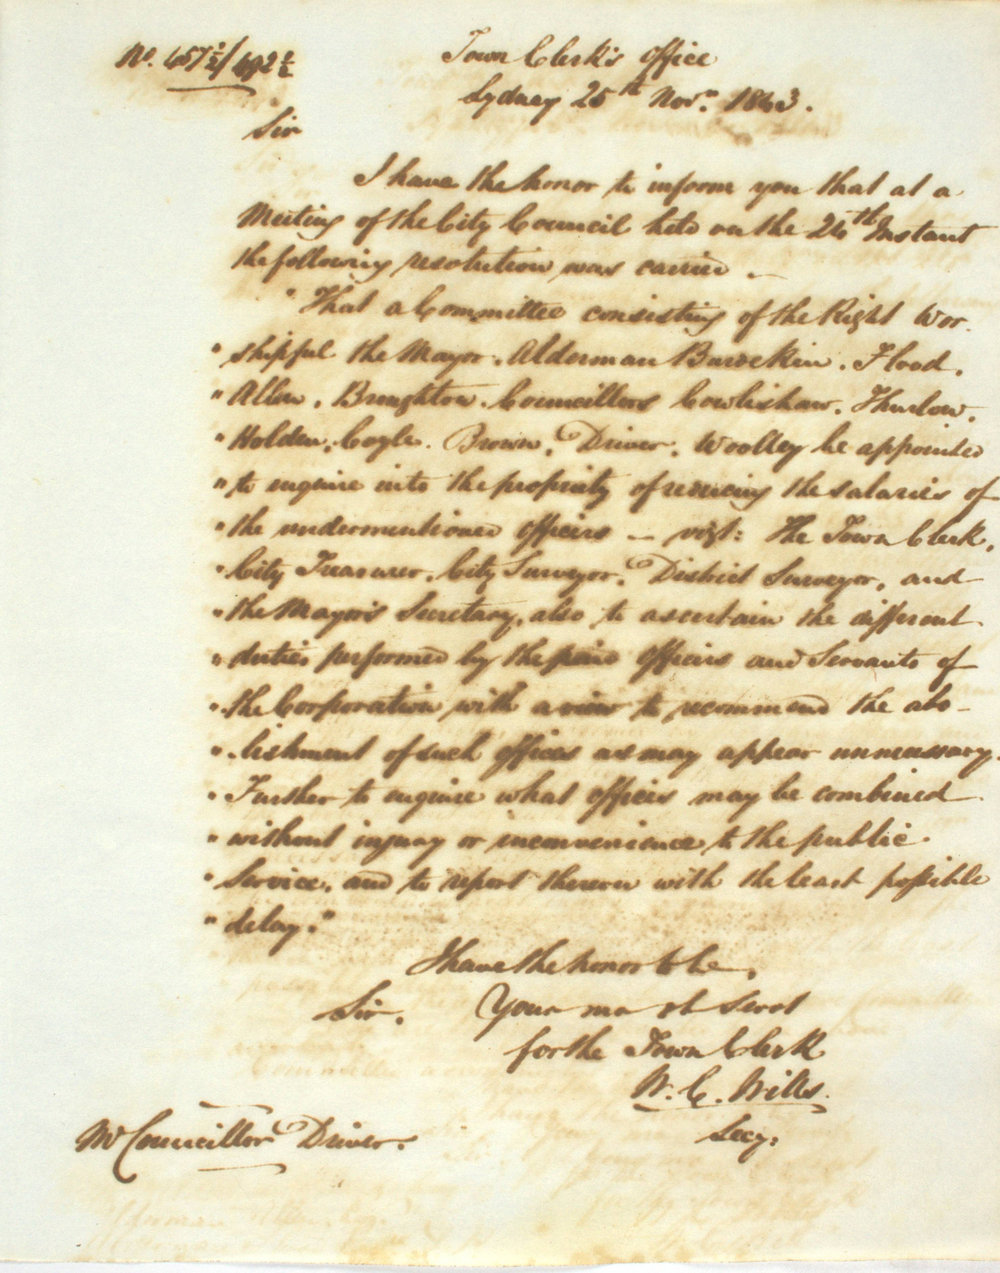 No. 457½/492½
Town Clerk's Office
Sydney 25th Novr. 1843.
Sir
I have the honor to inform you that at a
Meeting of the City Council held on the 24th Instant
the following resolution was carried —
"That a Committee consisting of the Right Wor
" shipful the Mayor. Alderman Burdekin. Flood.
" Allen. Broughton. Councillors Cowlishaw. Thurlow.
" Holden. Coyle. Brown. Driver. Woolley be appointed
" to enquire into the propriety of reducing the salaries of
" the undermentioned officers — vizt: The Town Clerk,
" City Treasurer. City Surveyor. District Surveyor, and
" the Mayor's Secretary, also to ascertain the different
" duties performed by the paid officers and Servants of
" the Corporation with a view to recommend the abo-
" lishment of such offices as may appear unnecessary.
" Further to enquire what offices may be combined
" without injury or inconvenience to the public
" Service, and to report thereon with the least possible
" delay."
I have the honor to be,
Sir.
Your mo st obt Servt
for the Town Clerk
W. C. Wills.
Secy.
Mr Councillor Driver.